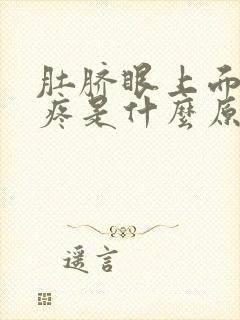 肚脐眼上面
疼是什麼原
遥言